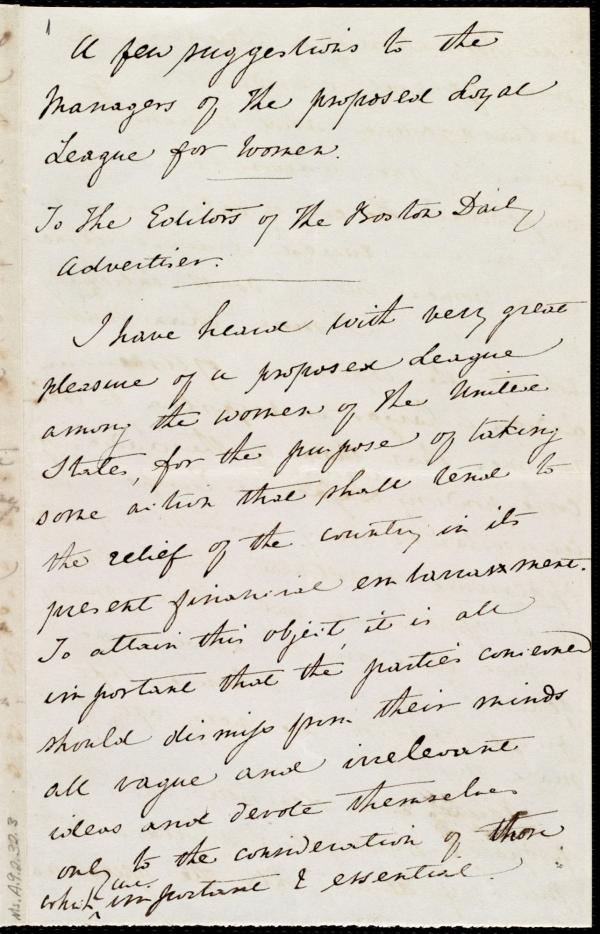 1
A few suggestions to the
Managers of the proposed Loyal
League for Women.
To the Editors of the Boston Daily
Advertiser.
I have heard with very great
pleasure of a proposed League
among the women of the United
States, for the purpose of taking
some action that shall tend to
the relief of the country in its
present financial embarrassment.
To attain this object, it is all
important that the parties concerned
should dismiss from their minds
all vague and irrelevant
ideas and devote themselves
only to the consideration of those
which are important & essential.
Ms. A.9.2.32.3